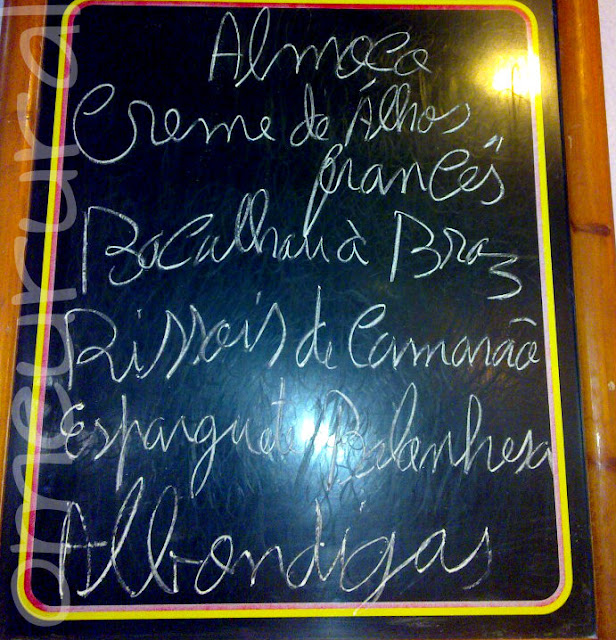 Almoço
Creme de Álhos
francês
Bacalhau à Braz
Rissois de Camarão
Esparguete
Albondigas
omeyrural